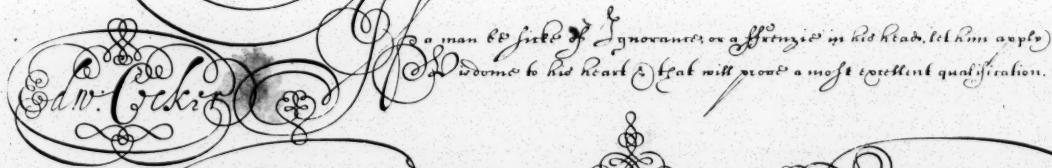 If a man be sicke of Ignorance, or a ffrenzie in his head, let him apply
Wisdome to his heart & that will prove a most excellent qualification.
Edw. Cocker